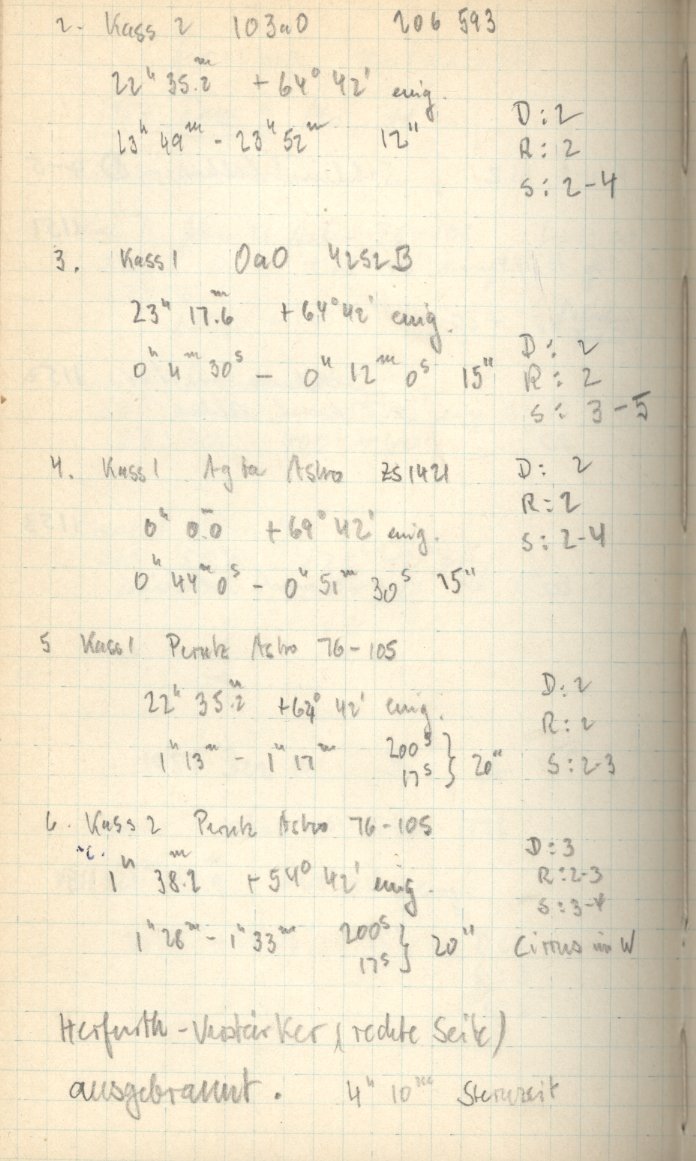 2. Kass 2 103a0 206 593
22ʰ 35.2ᵐ +64° 42' einig.
23ʰ 49ᵐ - 23ʰ 52ᵐ 12"
D: 2
R: 2
S: 2-4
3. Kass 1 0a0 4252B
23ʰ 17.6ᵐ +64° 42' einig.
0ʰ 4ᵐ 30ˢ - 0ʰ 12ᵐ 0ˢ 15"
D: 2
R: 2
S: 3-5
4. Kass 1 Agfa Astro ZS1421
0ʰ 0.0ᵐ +69° 42' einig.
0ʰ 44ᵐ 0ˢ - 0ʰ 51ᵐ 30ˢ 15"
D: 2
R: 2
S: 2-4
5 Kass 1 Perutz Astro 76-105
22ʰ 35.2ᵐ +64° 42' einig.
1ʰ 13ᵐ - 1ʰ 17ᵐ 200ˢ } 20"
17ˢ
D: 2
R: 2
S: 2-3
6. Kass 2 Perutz Astro 76-105
1ʰ 38.2ᵐ +54° 42' einig.
1ʰ 28ᵐ - 1ʰ 33ᵐ 200ˢ } 20"
17ˢ
D: 3
R: 2-3
S: 3-4
Cirrus im W
Herfurth-Verstärker (rechte Seite)
ausgebrannt. 4ʰ 10ᵐ Sternzeit